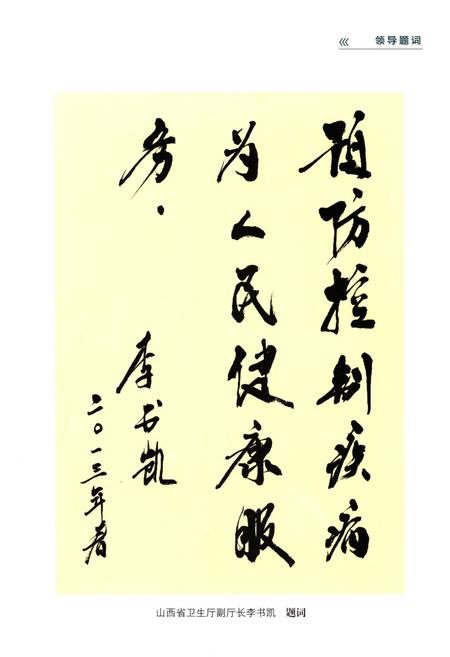 领导题词
预防控制疾病
为人民健康服
务.
李书凯
二〇一三年春
山西省卫生厅副厅长李书凯 题词